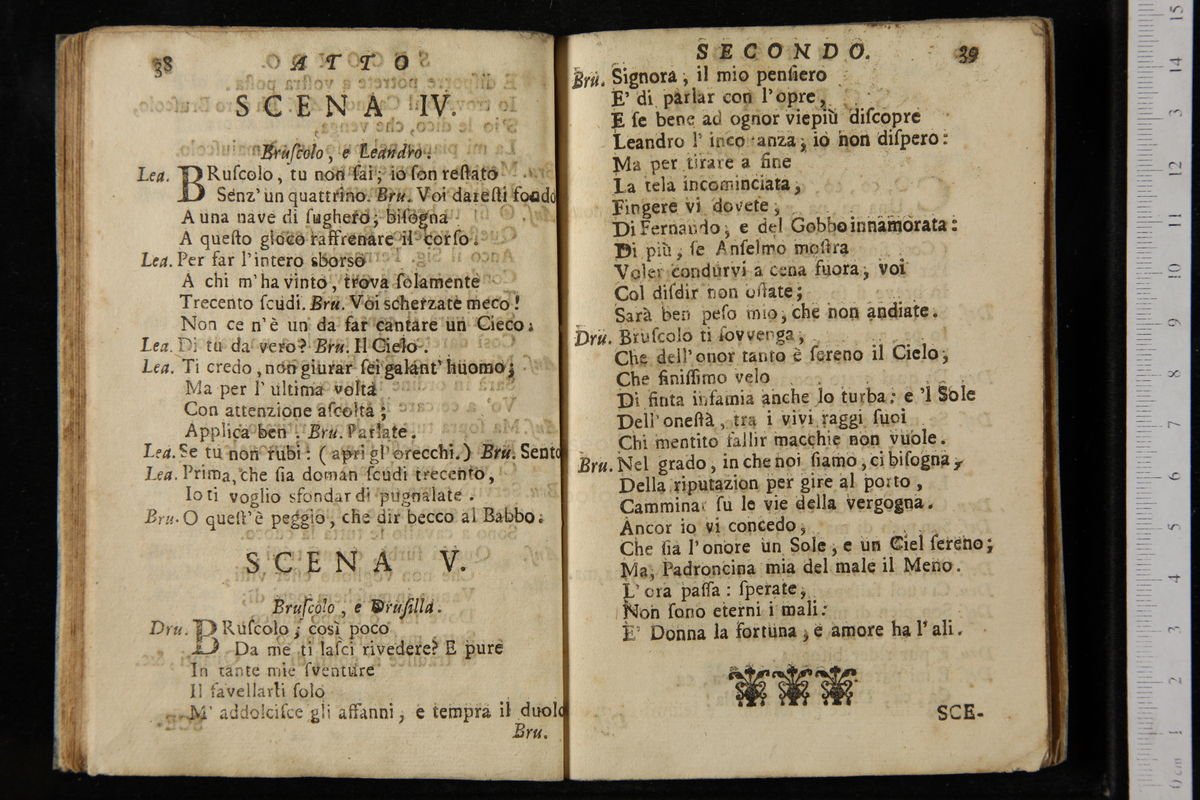 38 ATTO
SCENA IV.
Bruſcolo, e Leandro.
Lea. BRuſcolo, tu non ſai; io ſon reſtato
Senz' un quattrino. Bru. Voi dareſti fondo
A una nave di ſughero; biſogna
A queſto gioco raffrenare il corſo.
Lea. Per far l'intero sborso
A chi m'ha vinto, trova ſolamente
Trecento ſcudi. Bru. Voi scherzate meco!
Non ce n'è un da far cantare un Cieco.
Lea. Di tu da vero? Bru. Il Cielo.
Lea. Ti credo, non giurar ſei galant' huomo;
Ma per l' ultima volta
Con attenzione aſcolta;
Applica ben. Bru. Parlate.
Lea. Se tu non rubi: (apri gl' orecchi.) Bru. Sento
Lea. Prima, che ſia doman ſcudi trecento,
Io ti voglio sfondar di pugnalate.
Bru. O queſt'è peggio, che dir becco al Babbo.
SCENA V.
Bruſcolo, e Druſilla.
Dru. BRuſcolo, così poco
Da me ti laſci rivedere? E pure
In tante mie ſventure
Il favellarti ſolo
M' addolciſce gli affanni, e tempra il duolo
Bru.
SECONDO. 39
Bru. Signora, il mio penſiero
E' di parlar con l'opre,
E ſe bene ad ognor viepiù diſcopre
Leandro l' anza, io non diſpero:
Ma per tirare a fine
La tela incominciata,
Fingere vi dovete,
Di Fernando, e del Gobbo innamorata:
Di più, ſe Anſelmo moſtra
Voler condurvi a cena fuora, voi
Col diſdir non oſtate;
Sarà ben peſo mio, che non andiate.
Dru. Bruſcolo ti ſovvenga,
Che dell'onor tanto è ſereno il Cielo,
Che finiſſimo velo
Di finta infamia anche lo turba: e 'l Sole
Dell'oneſtà, tra i vivi raggi ſuoi
Chi mentito fallir macchie non vuole.
Bru. Nel grado, in che noi ſiamo, ci biſogna,
Della riputazion per gire al porto,
Camminar ſu le vie della vergogna.
Ancor io vi concedo,
Che ſia l'onore un Sole, e un Ciel ſereno;
Ma, Padroncina mia del male il Meno.
L' ora paſſa: ſperate,
Non ſono eterni i mali:
E' Donna la fortuna, e amore ha l' ali.
SCE-